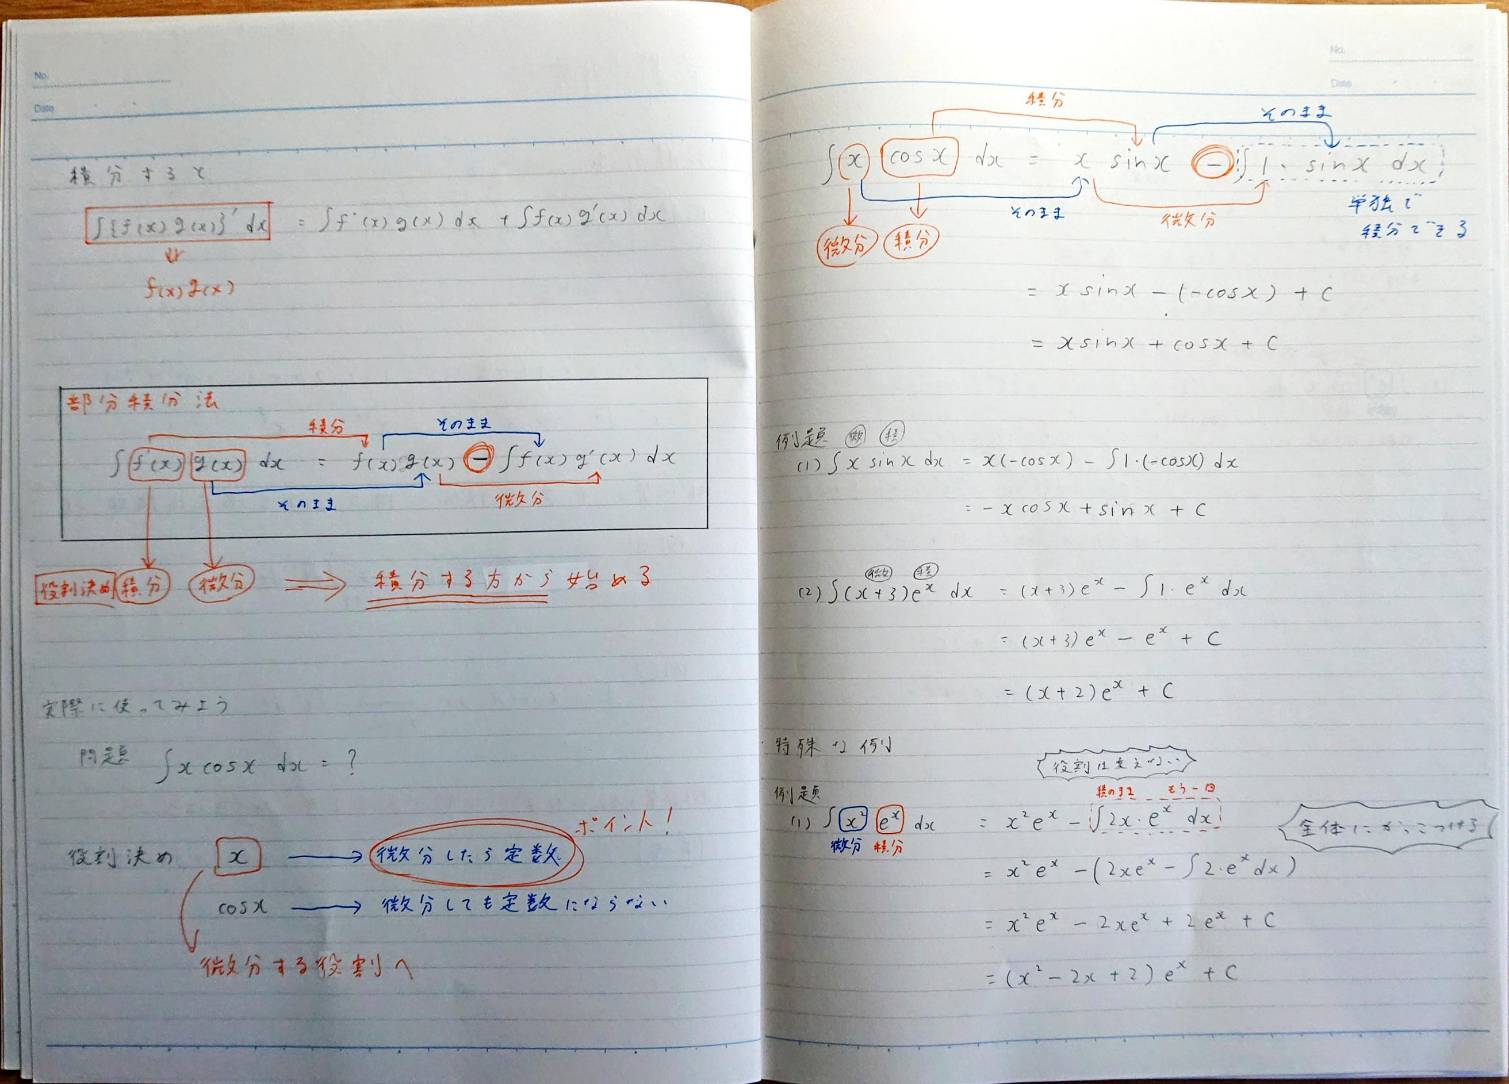 No.
Date
積分すると
∫{f(x)g(x)}' dx = ∫f'(x)g(x) dx + ∫f(x)g'(x) dx
f(x)g(x)
部分積分法
積分 そのまま
∫f(x)g(x) dx = f(x)g(x) - ∫f(x)g'(x) dx
そのまま 微分
役割決め 積分 微分 ⇒ 積分する方から始める
実際に使ってみよう
問題 ∫x cosx dx = ?
ポイント!
役割決め x → 微分したら定数
cosx → 微分しても定数にならない
微分する役割へ
No.
Date
積分 そのまま
∫x cosx dx = x sinx - ∫1・sinx dx
そのまま 微分 単独で
微分 積分 積分できる
= x sinx - (-cosx) + C
= x sinx + cosx + C
例題 微 積
(1) ∫x sinx dx = x(-cosx) - ∫1・(-cosx) dx
= -x cosx + sinx + C
微分 積
(2) ∫(x+3)e^x dx = (x+3)e^x - ∫1・e^x dx
= (x+3)e^x - e^x + C
= (x+2)e^x + C
特殊な例
役割は変えない
例題 積のまま もう一回
(1) ∫x² e^x dx = x²e^x - ∫2x・e^x dx
微分 積分 全体にかっこつける
= x²e^x - (2xe^x - ∫2・e^x dx)
= x²e^x - 2xe^x + 2e^x + C
= (x² - 2x + 2)e^x + C